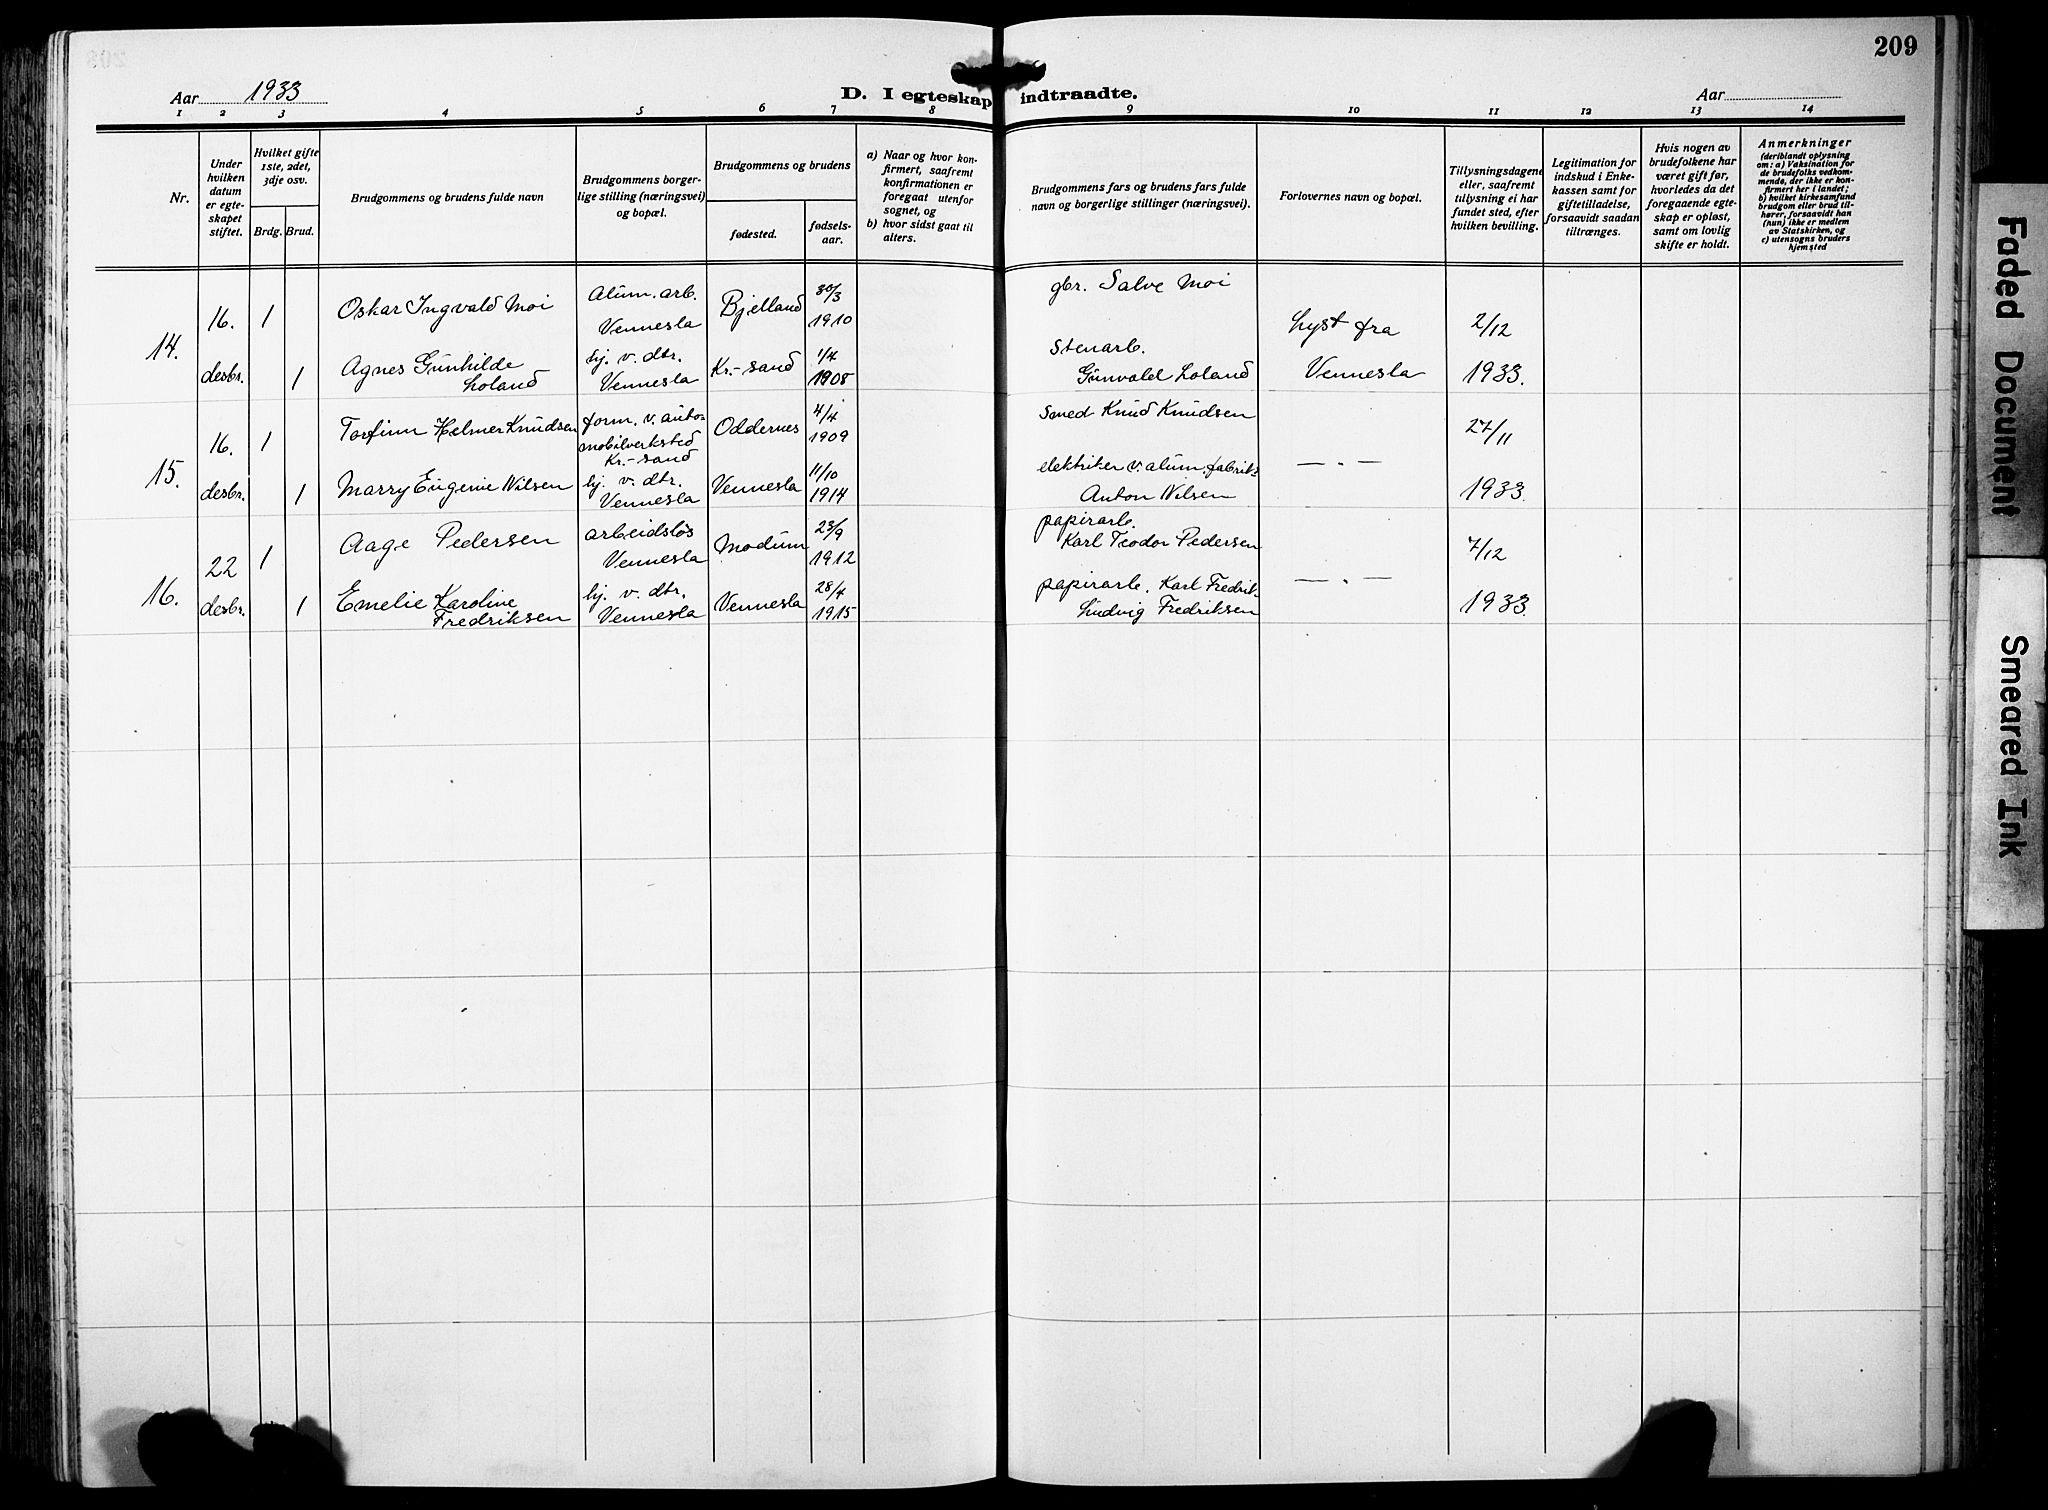 209
Aar 1933
D. I egteskap indtraadte.
Aar
1 2 3 4 5 6 7 8 9 10 11 12 13 14
Nr.
Under hvilken datum er egteskapet stiftet.
Hvilket gifte 1ste, 2det, 3dje osv.
Brdg. Brud.
Brudgommens og brudens fulde navn
Brudgommens borgerlige stilling (næringsvei) og bopæl.
Brudgommens og brudens
fødested.
fødselsaar.
a) Naar og hvor konfirmert, saafremt konfirmationen er foregaat utenfor sognet, og
b) hvor sidst gaat til alters.
Brudgommens fars og brudens fars fulde navn og borgerlige stillinger (næringsvei).
Forlovernes navn og bopæl.
Tillysningsdagene eller, saafremt tillysning ei har fundet sted, efter hvilken bevilling.
Legitimation for indskud i Enkekassen samt for giftetilladelse, forsaavidt saadan tiltrænges.
Hvis nogen av brudefolkene har været gift før, hvorledes da det foregaaende egteskap er opløst, samt om lovlig skifte er holdt.
Anmerkninger
(deriblandt oplysning om: a) Vaksination for de brudefolks vedkommende, der ikke er konfirmert her i landet; b) hvilket kirkesamfund brudgom eller brud tilhører, forsaavidt han (hun) ikke er medlem av Statskirken, og c) utensogns bruders hjemsted
14.
16. desbr.
1
Oskar Ingvald Moi
Alum. arb. Vennesla
Bjelland
30/3 1910
gbr. Salve Moi
Lyst fra Vennesla
2/12 1933.
1
Agnes Gunhilde Loland
hj. v. dtr. Vennesla
Kr.-sand
1/4 1908
Stenarb. Gunvald Loland
15.
16. desbr.
1
Torfinn Helmer Knudsen
form. v. automobilverksted Kr.-sand
Oddernes
4/4 1909
Smed Knud Knudsen
— . —
27/11 1933.
1
Marry Eugenie Nilsen
hj. v. dtr. Vennesla
Vennesla
11/10 1914
elektriker v. alum. fabrik. Anton Nilsen
16.
22 desbr.
1
Aage Pedersen
arbeidsløs Vennesla
Modum
23/9 1912
papirarb. Karl Teodor Pedersen
— . —
7/12 1933.
1
Emelie Karoline Fredriksen
hj. v. dtr. Vennesla
Vennesla
28/4 1915
papirarb. Karl Fredrik Ludvig Fredriksen
Faded Document
Smeared Ink